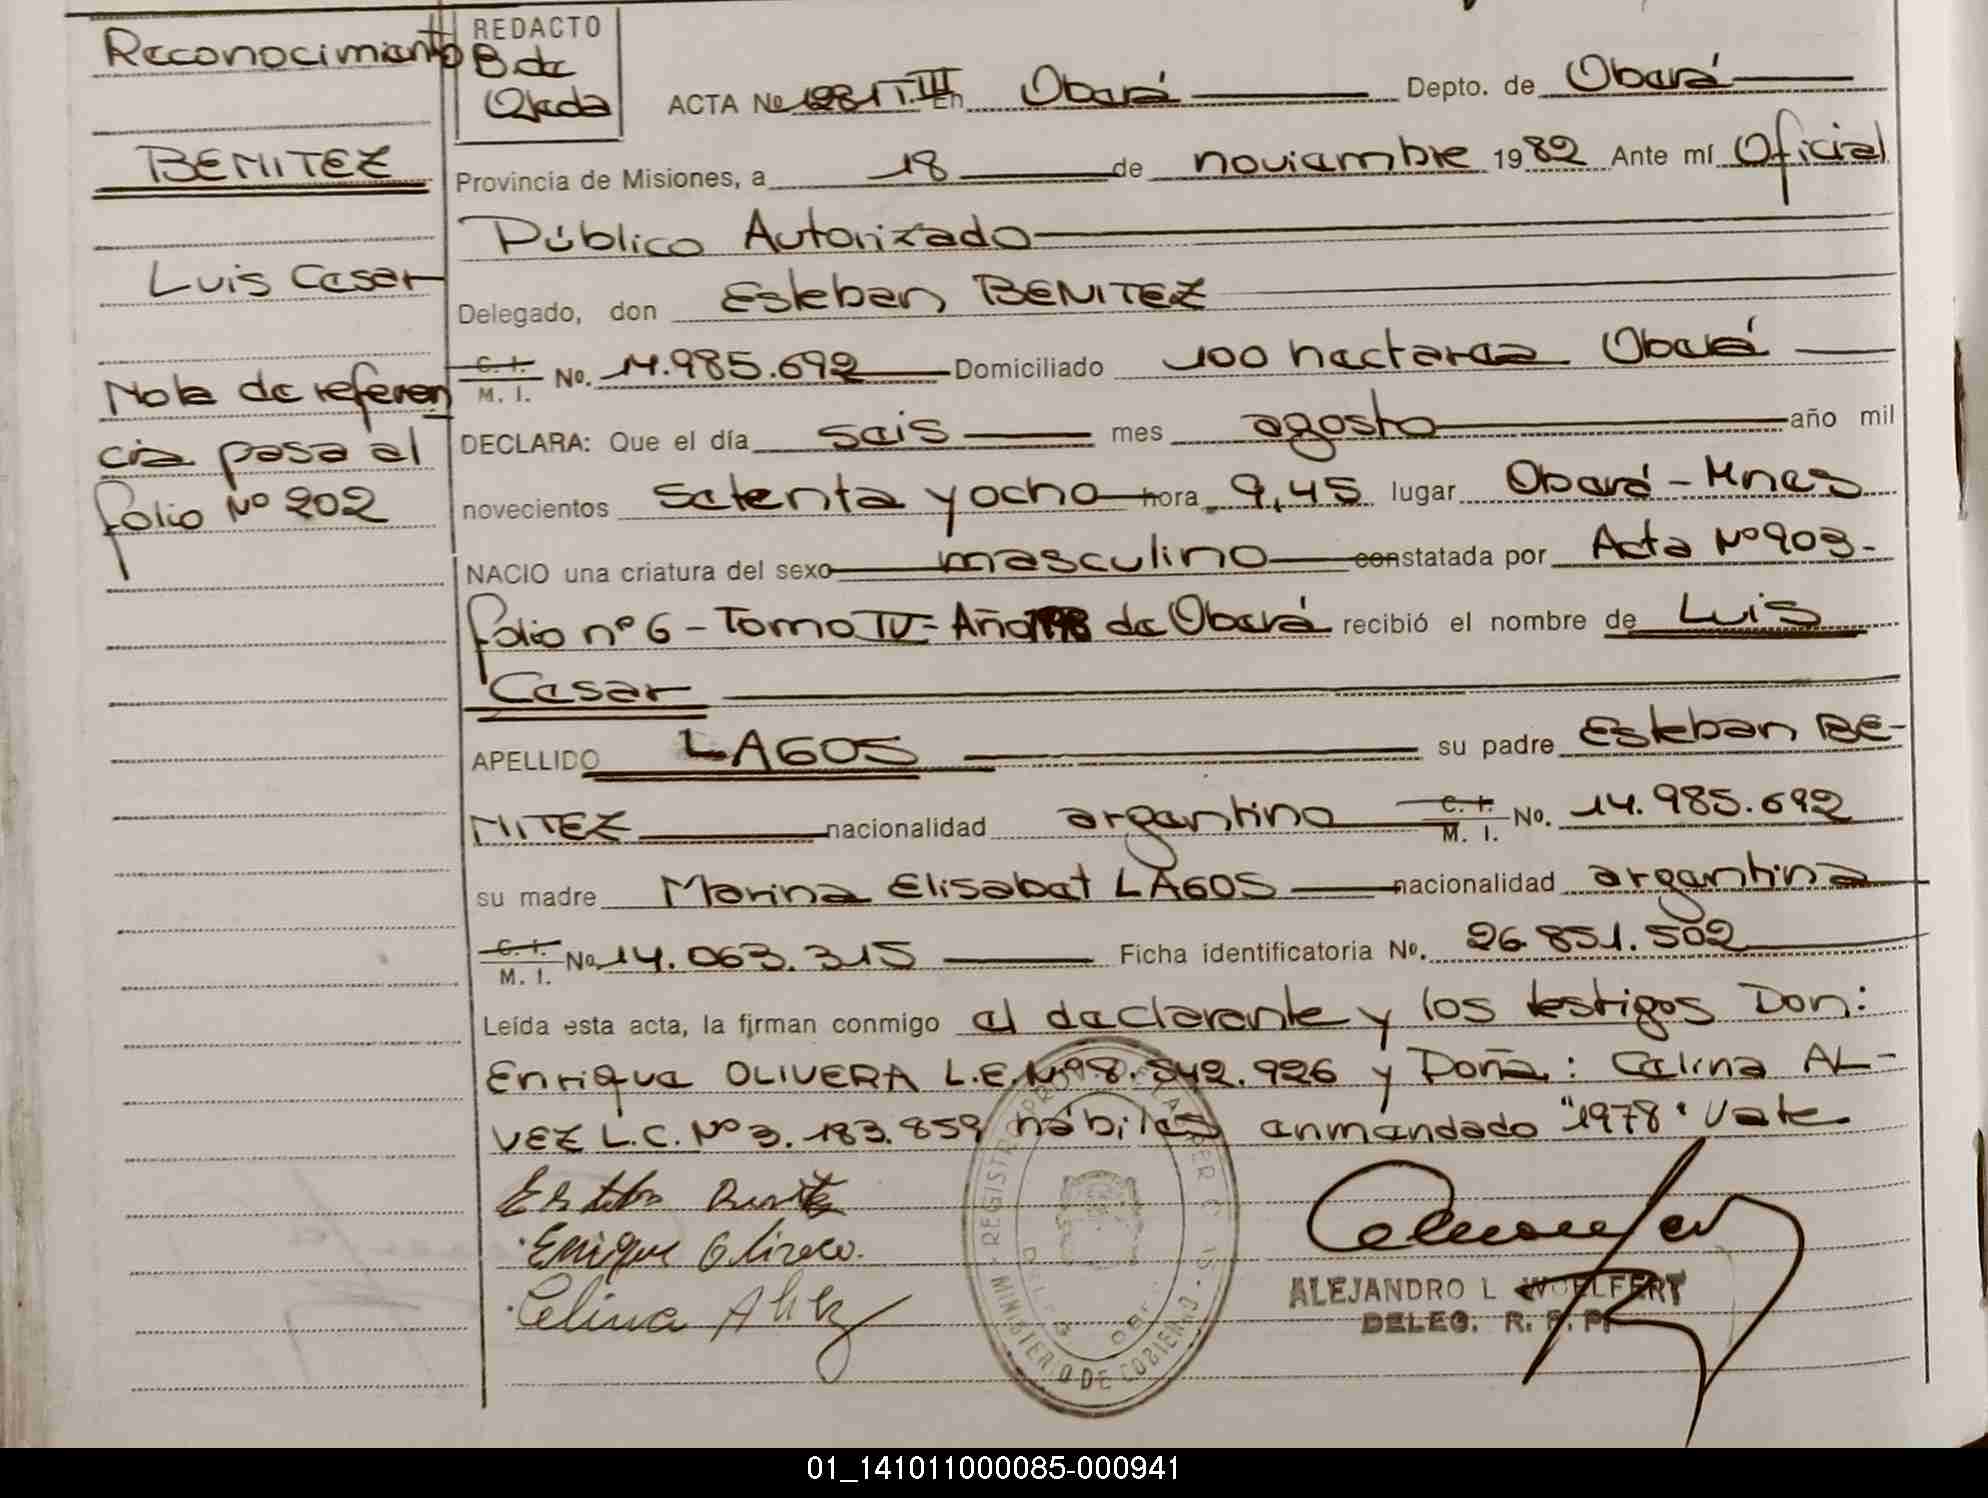 Reconocimiento
BENITEZ
Luis Cesar
Nota de referen
cia pasa al
folio Nº 202
REDACTO
B de
Ojeda
ACTA No 1281 T.III En Oberá Depto. de Oberá
Provincia de Misiones, a 18 de noviembre 1982 Ante mí Oficial
Público Autorizado
Delegado, don Esteban BENITEZ
C. I. M. I. No. 14.985.692 Domiciliado 100 hectarea Oberá
DECLARA: Que el día seis mes agosto año mil
novecientos setenta y ocho hora 9,45 lugar Oberá - Mnes
NACIO una criatura del sexo masculino constatada por Acta Nº 903-
folio nº 6 - Tomo IV - Año 1978 de Oberá recibió el nombre de Luis
Cesar
APELLIDO LAGOS su padre Esteban BE-
NITEZ nacionalidad argentino C. I. M. I. No. 14.985.692
su madre Marina Elisabet LAGOS nacionalidad argentina
C. I. M. I. No 14.063.315 Ficha identificatoria No. 26.851.502
Leída esta acta, la firman conmigo el declarante y los testigos Don:
Enrique OLIVERA L.E. Nº 8.542.926 y Doña: Celina AL-
VEZ L.C. Nº 3.183.859 hábiles enmendado "1978" Vale
Esteban Benitez
Enrique Olivera.
Celina Alvez
ALEJANDRO L WOELFERT
DELEG. R. P. P.
MINISTERIO DE GOBIERNO
01_141011000085-000941